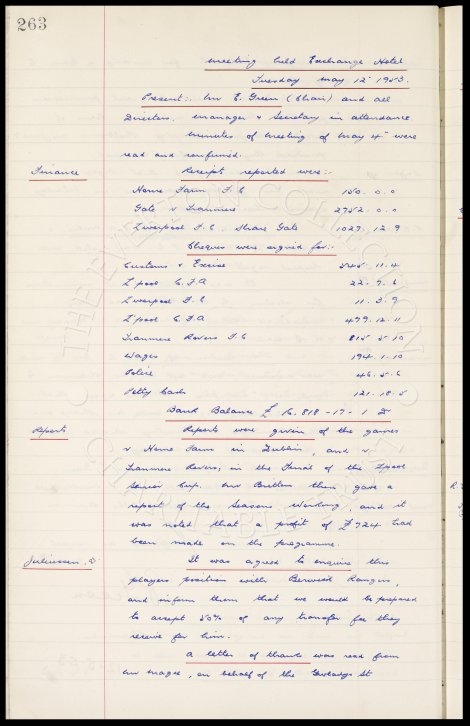 263
Meeting held Exchange Hotel
Tuesday May 12th 1953.
Present:. Mr E. Green (Chair) and all
Directors. Manager & Secretary in attendance
Minutes of meeting of May 4th were
read and confirmed.
Finance Receipts reported were:-
Home Farm F.C 150. 0. 0
Gate v Tranmere 2752. 0. 0
Liverpool F.C. Share Gate 1027. 12. 9
Cheques were signed for:-
Customs & Excise 545. 11. 4
L'pool C.F.A 22. 7. 6
Liverpool F.C 11. 3. 9
L'pool C.F.A 479. 12. 11
Tranmere Rovers F.C 815. 5. 10
Wages 194. 1. 10
Police 46. 5. 6
Petty Cash 121. 18. 5
Bank Balance £ 16,818-17-1
Reports Reports were given of the games
v Home Farm in Dublin, and v
Tranmere Rovers, in the Final of the L'pool
Senior Cup. Mr Britten then gave a
report of the Seasons Working, and it
was noted that a profit of £724 had
been made on the programme.
Juliussen, A It was agreed to enquire this
players position with Berwick Rangers,
and inform them that we would be prepared
to accept 50% of any transfer fee they
receive for him.
A letter of thanks was read from
Mr Magee, on behalf of the Gwladys St
THE EVERTON COLLECTION
CHARITABLE TRUST